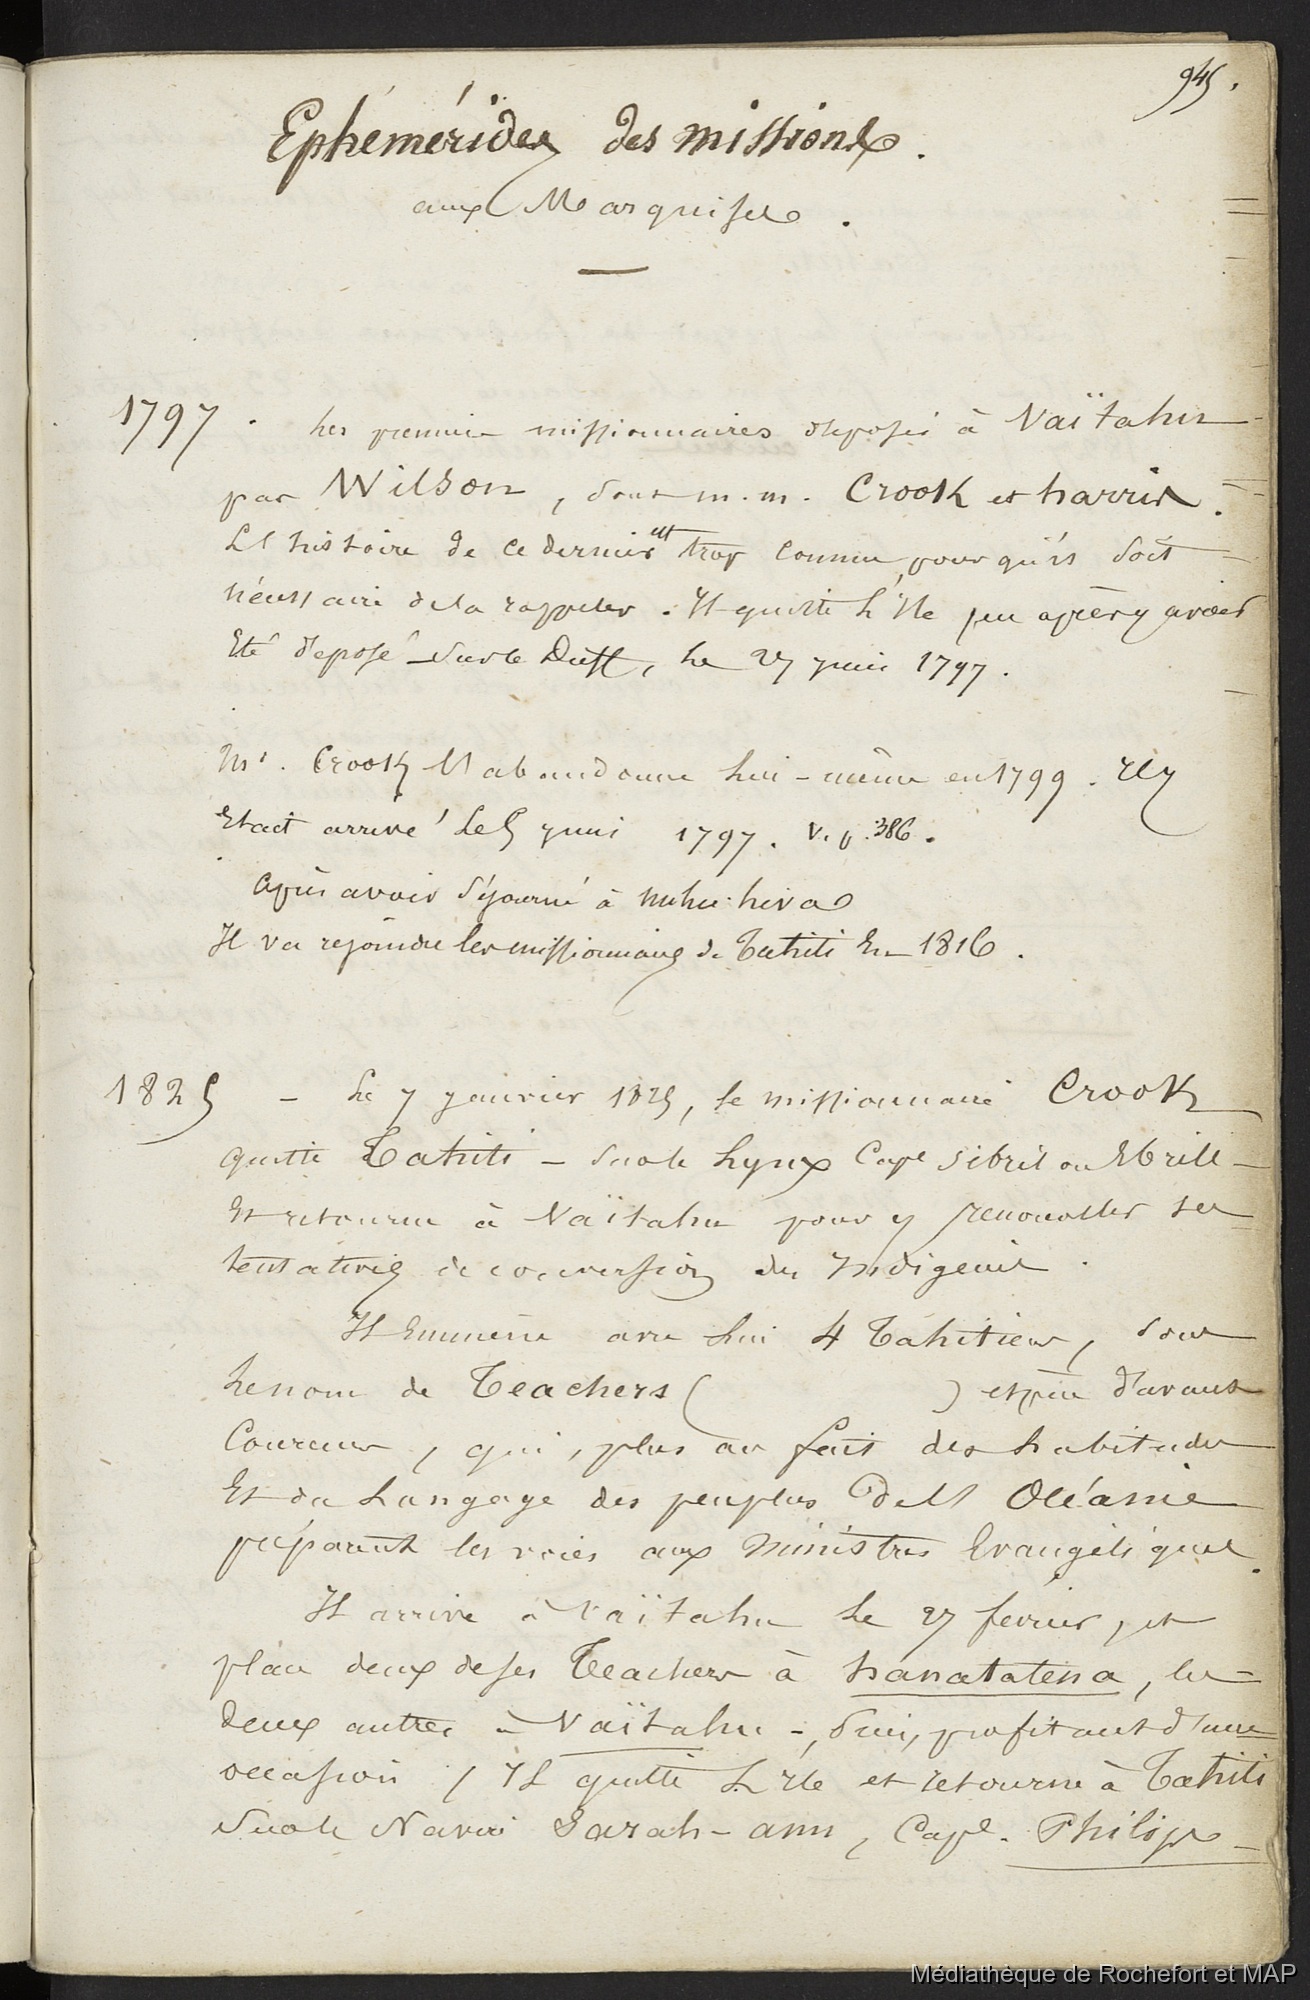 945.
Ephémérides des missions.
aux Marquises.
1797. Les premiers missionnaires déposés à Vaïtahu
par Wilson, sont m.m. Crook et harris.
L'histoire de ce dernier est trop connue pour qu'il soit
nécessaire de la rappeler. Il quitte l'Ile peu après y avoir
Eté déposé sur le Duff, le 27 juin 1797.
Mr. Crook l'abandonne lui-même en 1799. Il y
Etait arrivé le 5 juin 1797. V. p. 386.
après avoir séjourné à nuhu-hiva
Il va rejoindre les missionnaires de Tahiti En 1816.
1825 - Le 7 janvier 1825, le missionnaire Crook
quitte Tahiti - sur le Lynx Cape Sibril ou Ebrill -
Et retourne à Vaïtahu pour y renouveller ses
tentatives de conversion des Indigènes.
Il Emmène avec lui 4 Tahitiens, sous
le nom de Teachers ( ) espèce d'avant
Coureurs, qui, plus au fait des habitudes
Et du Langage des peuples de l'Océanie
préparent les voies aux Ministres Evangéliques.
Il arrive à Vaïtahu le 27 février, et
place deux de ses Teachers à hanatetena, les
deux autres à Vaïtahu -, puis, profitant d'une
occasion, Il quitte L'Ile et retourne à Tahiti
Sur le Navire Sarah-ann, Cape. Philips -
Médiathèque de Rochefort et MAP